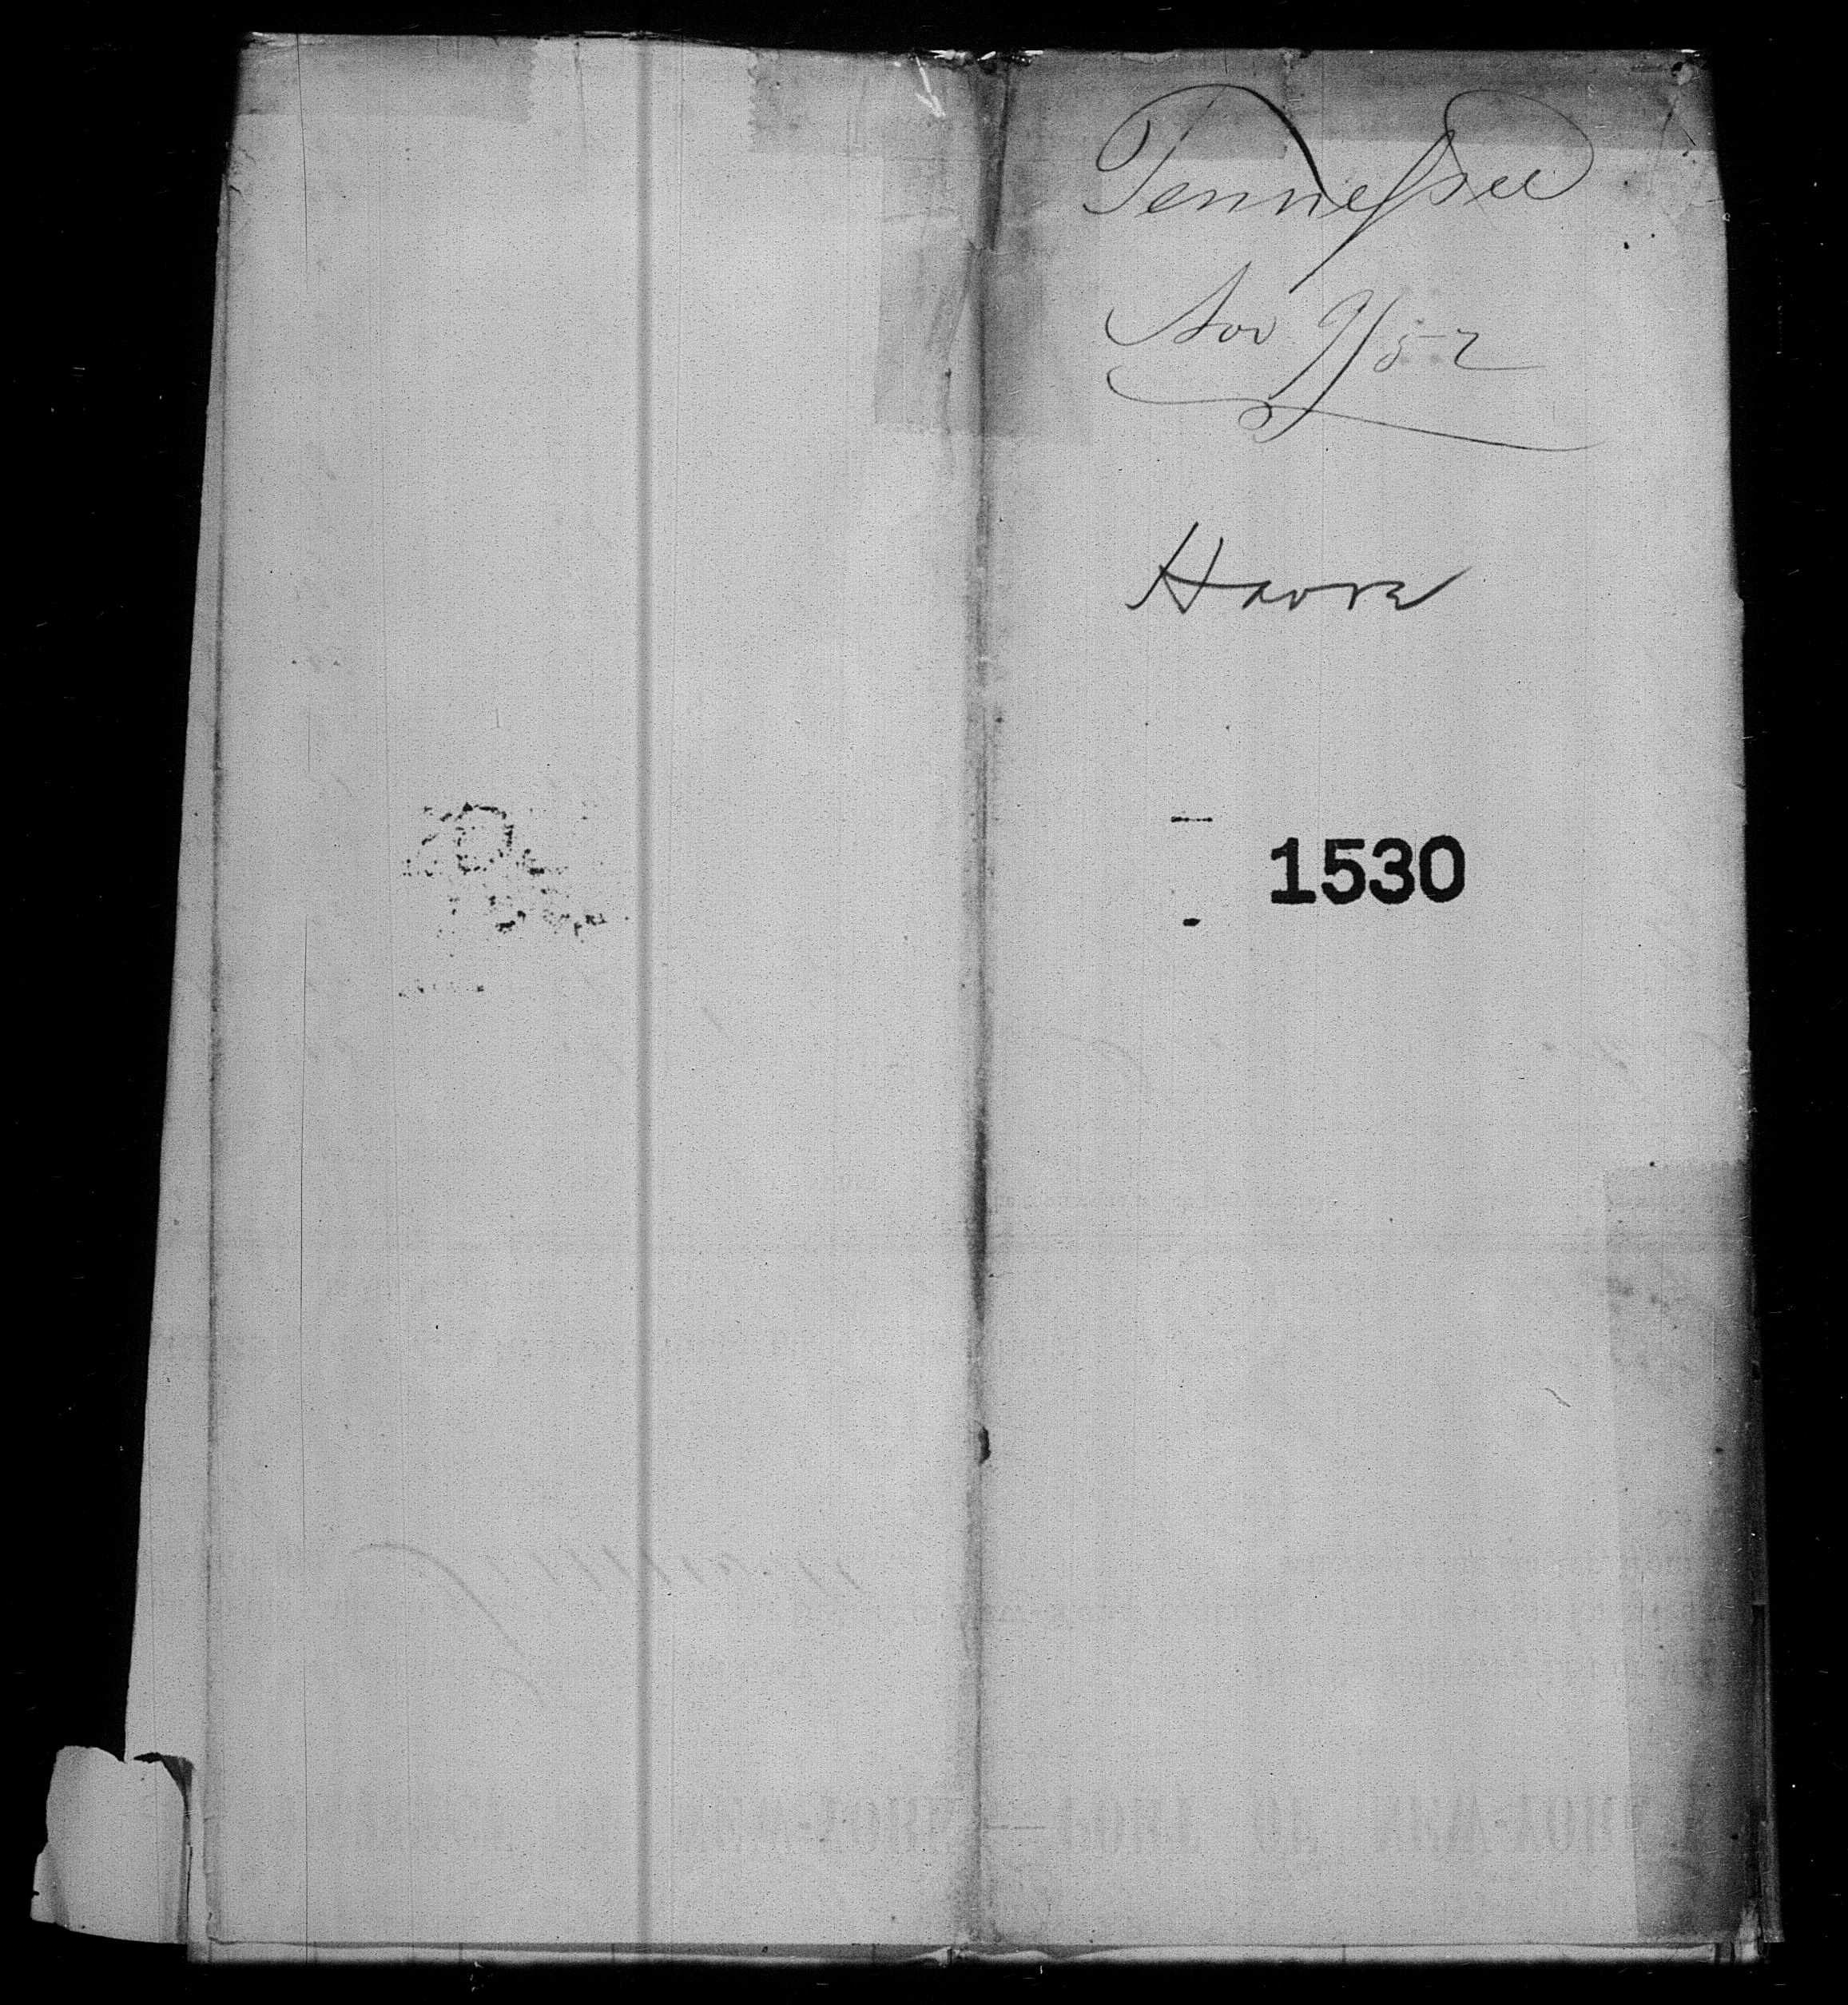 Tennessee
Nov 9/52
Havre
1530